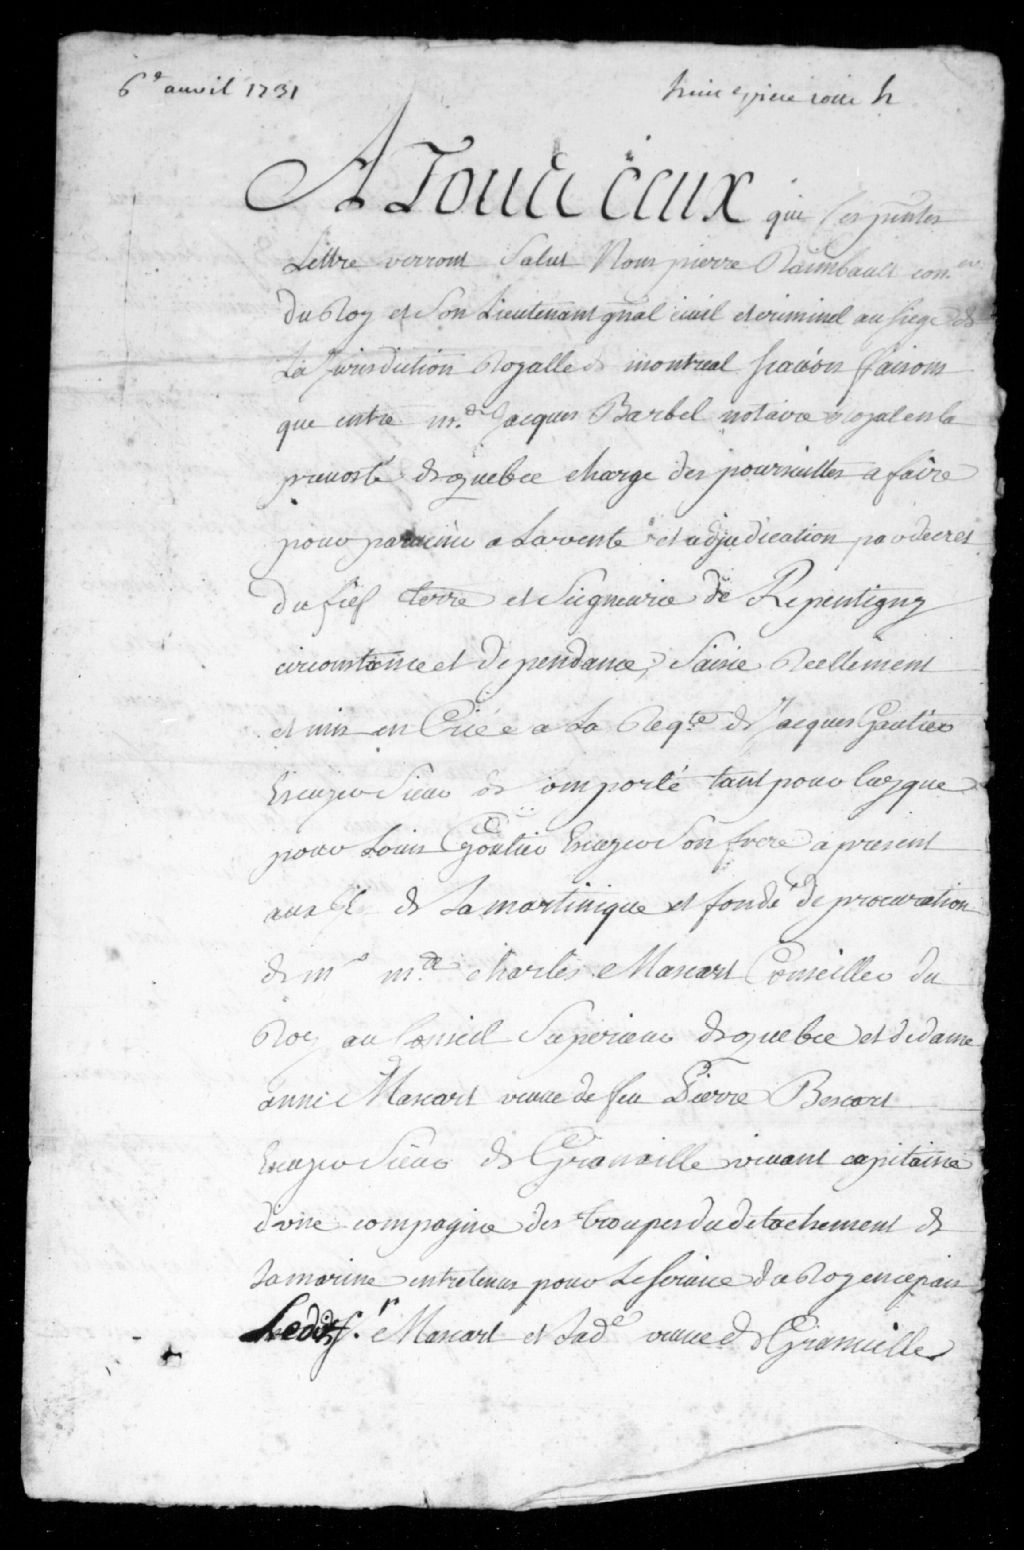 6e avril 1731
huit.e piece cotté h
A Tous Ceux qui Ces pñtes
Lettre verront Salut Nous pierre Raimbault con.er
du Roy et Son Lieutenant gñal civil et criminel au siege de
La Jurisdiction Royalle de montreal scavoir faisons
que entre m.e Jacques Barbel notaire royal en la
prevosté de quebec chargé des poursuittes a faire
pour parvenir a La vente et adjudication par decret
du fief terre et Seigneurie de Repentigny
circonstance et dependance, Saisie Reellement
et mis en Criée a La Reqte de Jacques Gautier
Escuyer Sieur de Comporté tant pour luy que
pour Louis Gautier Escuyer Son frere a present
aux de La martinique et fondé de procuration
de m.e charles Macart Conseiller du
Roy au Conseil Superieur de quebec et de dame
anne Macart veuve de feu Pierre Becart
Escuyer Sieur de Granville vivant capitaine
d'une compagnie des troupes du detachement de
La marine entretenus pour Le service du Roy en ce pais
Ledit S.r Macart et Lad.e veuve de Granville